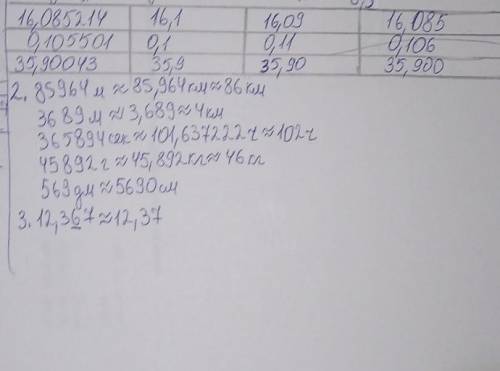 16,085214 16,1 16,09 16,085
0,105501 0,1 0,11 0,106
35,90043 35,9 35,90 35,900
2. 85964 м ≈ 85,964 км ≈ 86 км
3689 м ≈ 3,689 ≈ 4 км
365894 сек ≈ 101,637222 ч ≈ 102 ч
45892 г ≈ 45,892 кг ≈ 46 кг
569 дм ≈ 5690 см
3. 12,367 ≈ 12,37